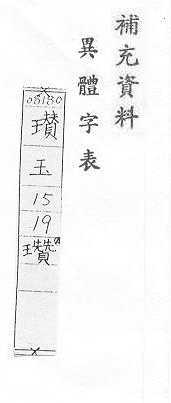 補充資料
異體字表
瓚
玉
15
19
瓚